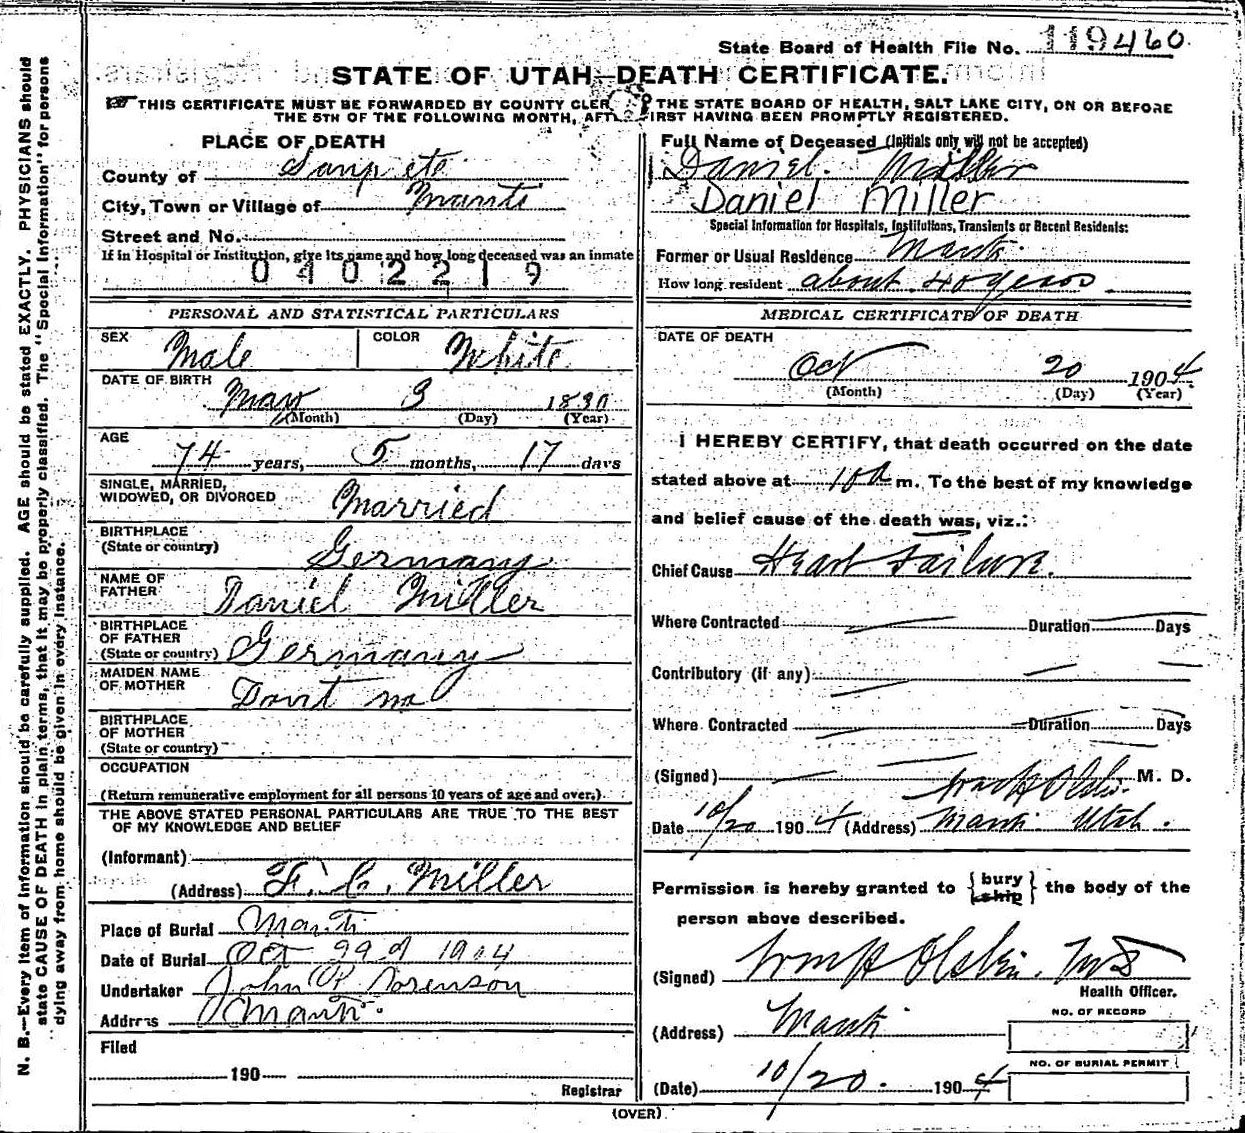 State Board of Health File No. 119460
STATE OF UTAH—DEATH CERTIFICATE.
THIS CERTIFICATE MUST BE FORWARDED BY COUNTY CLER THE STATE BOARD OF HEALTH, SALT LAKE CITY, ON OR BEFORE
THE 5TH OF THE FOLLOWING MONTH, AFT IRST HAVING BEEN PROMPTLY REGISTERED.
N. B.—Every item of information should be carefully supplied. AGE should be stated EXACTLY. PHYSICIANS should
state CAUSE OF DEATH in plain terms, that it may be properly classified. The "Special Information" for persons
dying away from home should be given in every instance.
PLACE OF DEATH
County of Sanpete
City, Town or Village of Manti
Street and No.
If in Hospital or Institution, give its name and how long deceased was an inmate
0402219
PERSONAL AND STATISTICAL PARTICULARS
SEX Male COLOR White
DATE OF BIRTH
May 3 1830
(Month) (Day) (Year)
AGE
74 years, 5 months, 17 days
SINGLE, MARRIED,
WIDOWED, OR DIVORCED Married
BIRTHPLACE
(State or country) Germany
NAME OF
FATHER Daniel Miller
BIRTHPLACE
OF FATHER
(State or country) Germany
MAIDEN NAME
OF MOTHER
BIRTHPLACE
OF MOTHER
(State or country)
OCCUPATION
(Return remunerative employment for all persons 10 years of age and over.)
THE ABOVE STATED PERSONAL PARTICULARS ARE TRUE TO THE BEST
OF MY KNOWLEDGE AND BELIEF
(Informant)
(Address) F. C. Miller
Place of Burial Manti
Date of Burial Oct 1904
Undertaker John P. Sorenson
Address Manti.
Filed
190
Registrar
Full Name of Deceased (Initials only will not be accepted)
Daniel. Miller
Daniel Miller
Special Information for Hospitals, Institutions, Transients or Recent Residents:
Former or Usual Residence Manti.
How long resident about 40 years.
MEDICAL CERTIFICATE OF DEATH
DATE OF DEATH
Oct 20 1904
(Month) (Day) (Year)
I HEREBY CERTIFY, that death occurred on the date
stated above at 10 a m. To the best of my knowledge
and belief cause of the death was, viz.:
Chief Cause Heart Failure.
Where Contracted Duration Days
Contributory (if any)
Where Contracted Duration Days
(Signed) M. D.
Date 10/20 1904 (Address) Manti Utah.
Permission is hereby granted to { bury ship } the body of the
person above described.
(Signed)
Health Officer.
(Address) Manti
(Date) 10/20. 1904
NO. OF RECORD
NO. OF BURIAL PERMIT
(OVER)